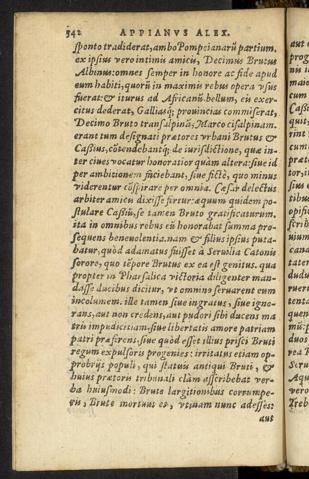 342 APPIANVS ALEX.
sponto tradiderat, ambo Pompeianarū partium.
ex ipsius vero intimis amicis, Decimus Brutus
Albinus: omnes semper in honore ac fide apud
eum habiti, quorū in maximis rebus opera vsus
fuerat: & iturus ad Africanū bellum, eis exer-
citus dederat, Galliasq́; prouincias commiserat,
Decimo Bruto transalpinā, Marco cisalpinam.
erant tum designati prætores vrbani Brutus &
Cassius, cōtendebantq́; de iurisdictione, quæ in-
ter ciues vocatur honoratior quàm altera: siue id
per ambitionem faciebant, siue fictè, quo minus
viderentur cōspirare per omnia. Cæsar delectus
arbiter amicis dixisse fertur: æquum quidem po-
stulare Cassiū, se tamen Bruto gratificaturum.
ita in omnibus rebus eū honorabat summa pro-
sequens beneuolentia. nam & filius ipsius puta-
batur, quòd adamatus fuisset à Seruilia Catonis
sorore, quo tēpore Brutus ex ea est genitus. qua
propter in Pharsalica victoria diligenter man-
dasse ducibus dicitur, vt omnino seruarent eum
incolumem. ille tamen siue ingratus, siue igno-
rans, aut non credens, aut pudori sibi ducens ma
tris impudicitiam, siue libertatis amore patriam
patri præferens, siue quòd esset illius prisci Bruti
regum expulsoris progenies: irritatus etiam op-
probrijs populi, qui statuis antiqui Bruti, &
huius prætoris tribunali clàm ascribebat ver-
ba huiusmodi: Brute largitionibus corrumpe-
ris, Brute mortuus es, vtinam nunc adesses:
aut